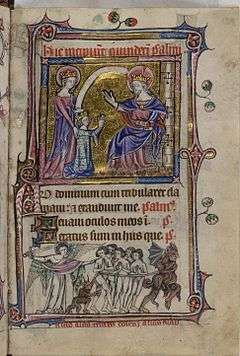 Hic incipiunt quindeci psalmi
Ad dominum cum tribularer cla
maui: et exaudiuit me. psalm
Leuaui oculos meos i. p
Letatus sum in hiis que. p